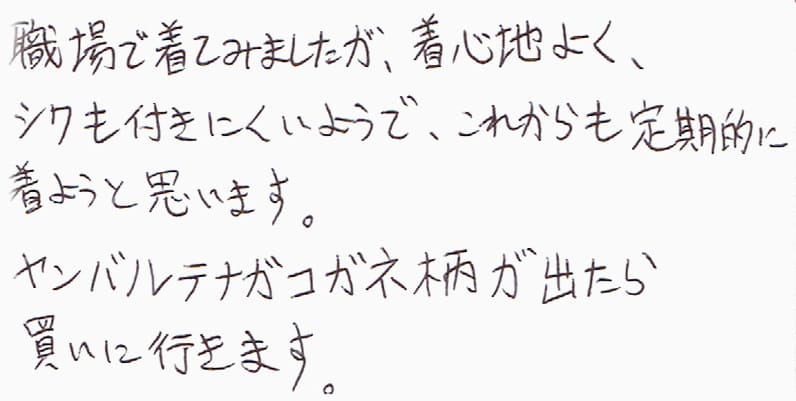 職場で着てみましたが、着心地よく、
シワも付きにくいようで、これからも定期的に
着ようと思います。
ヤンバルテナガコガネ柄が出たら
買いに行きます。